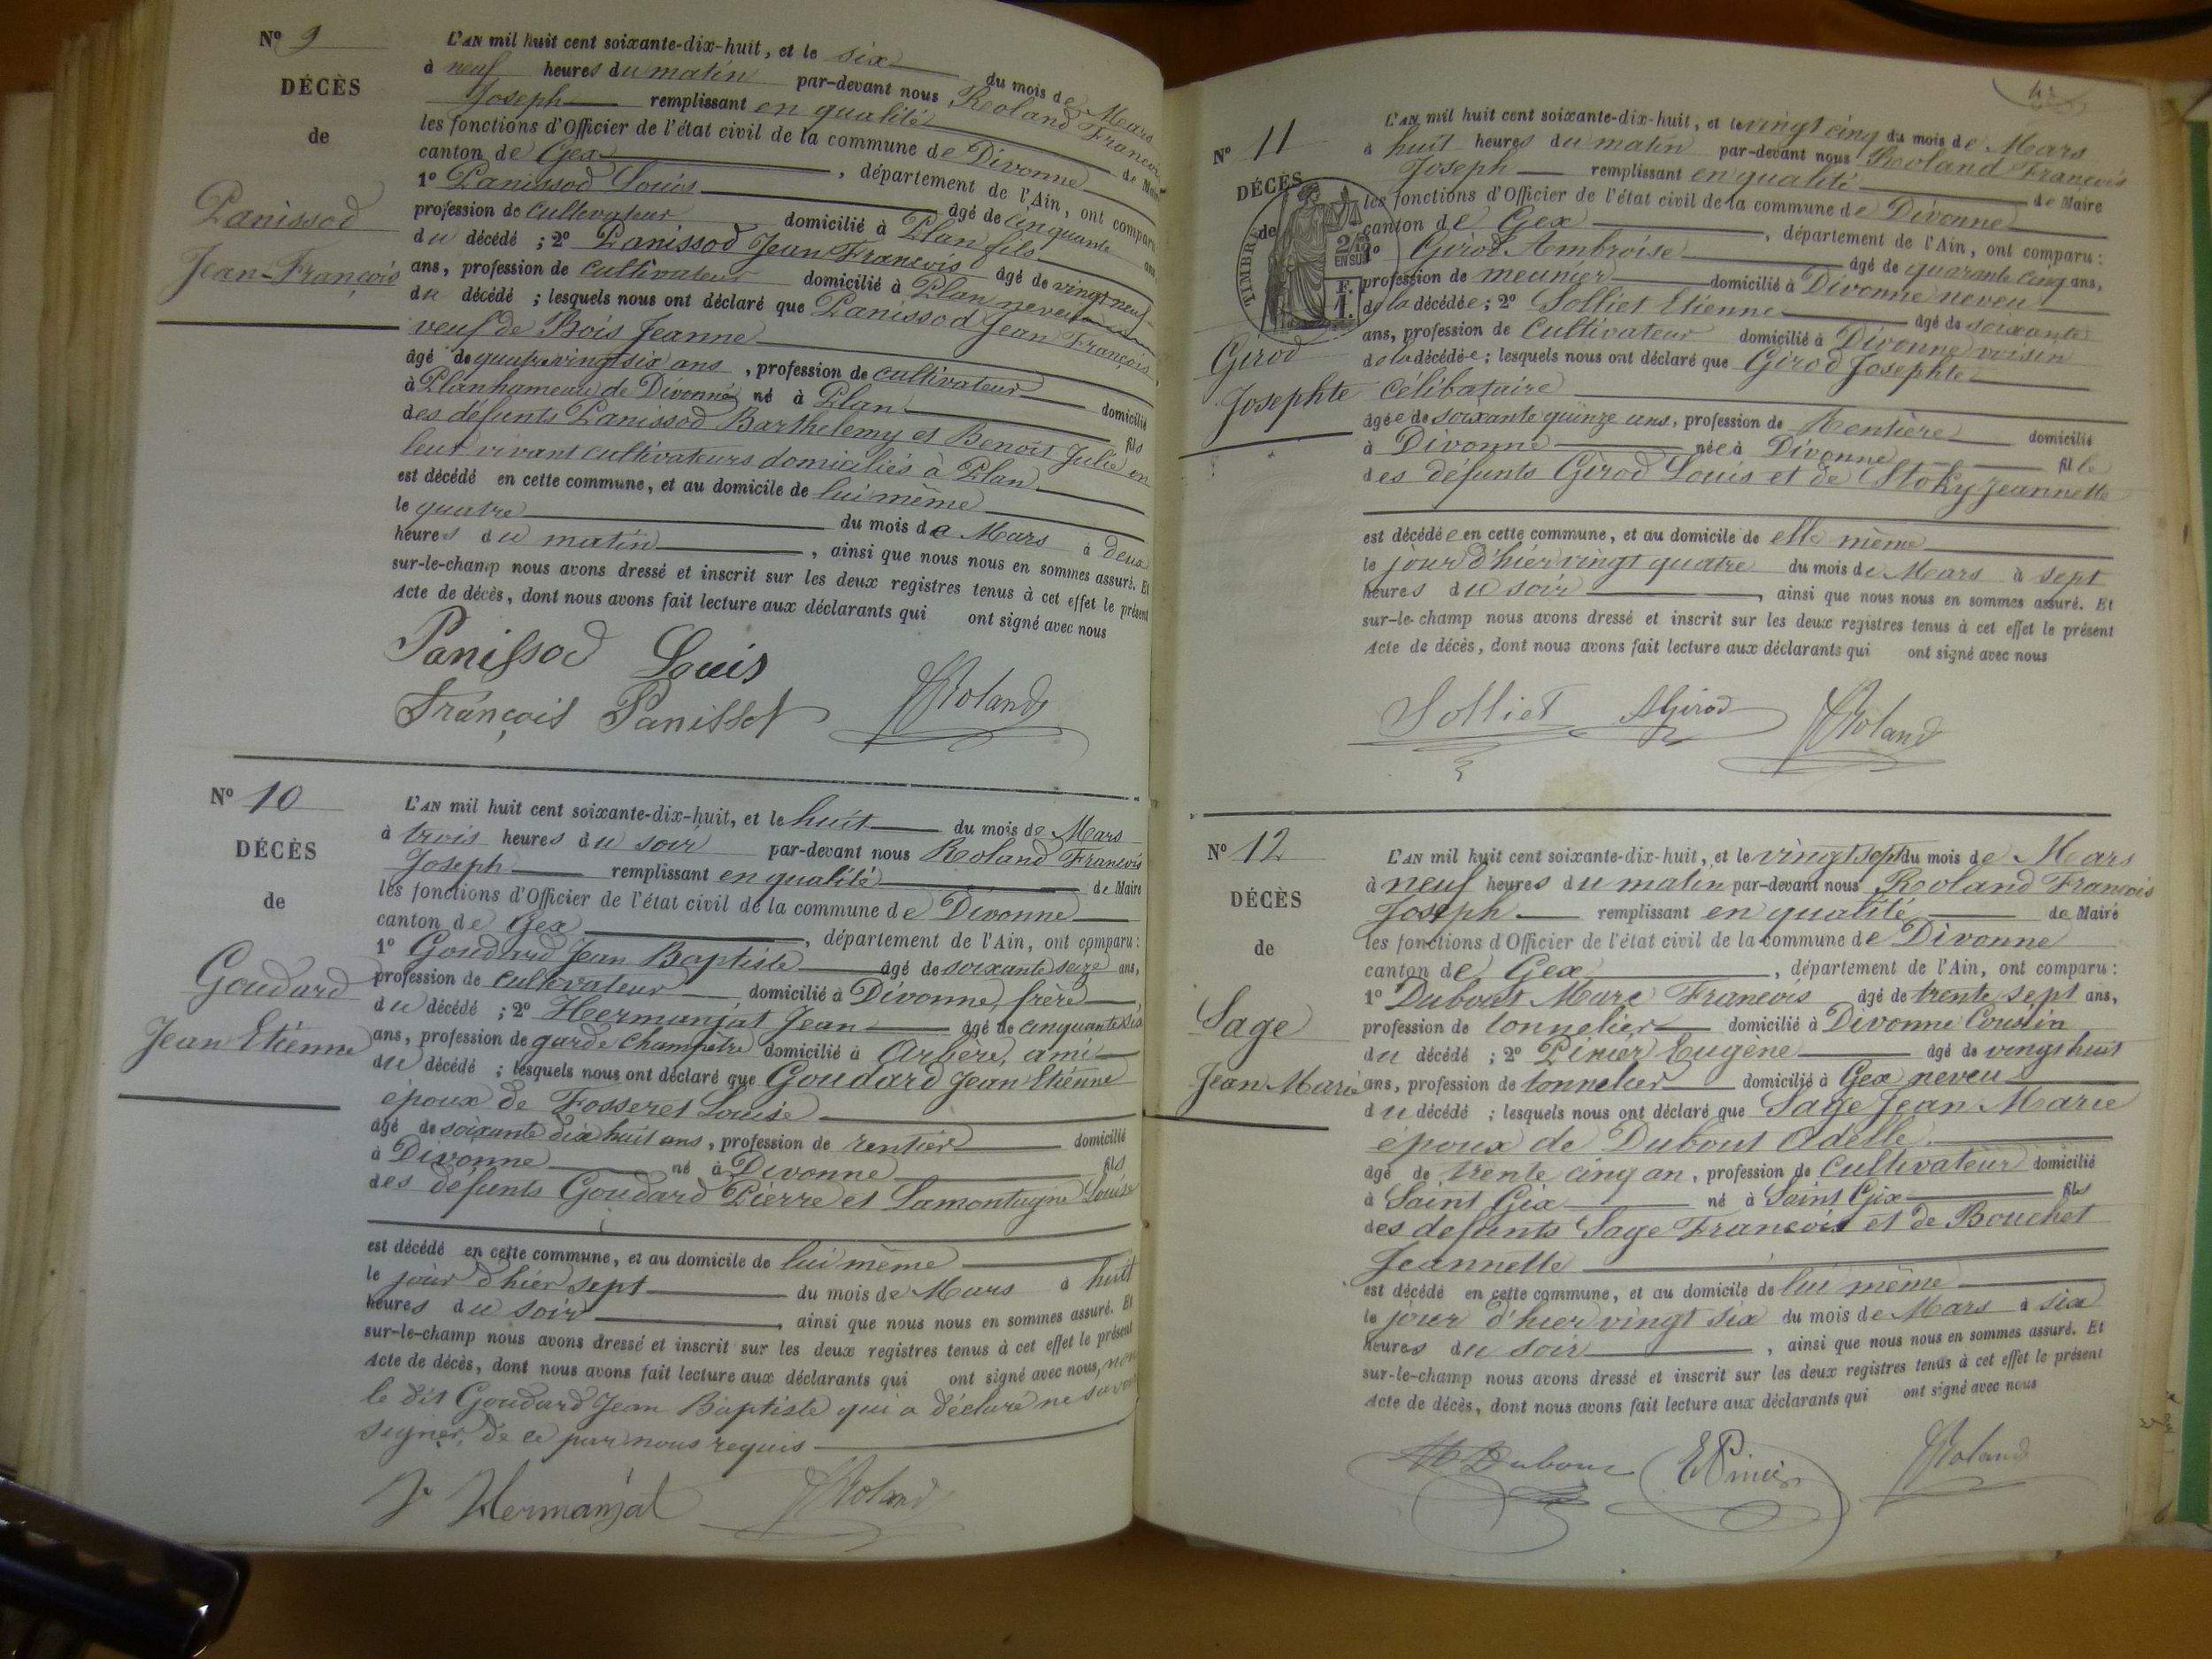 N° 9
DÉCÈS
de
Panissod
Jean-François
L'AN mil huit cent soixante-dix-huit, et le six du mois de Mars
à neuf heures du matin par-devant nous Roland François
Joseph remplissant en qualité de Maire
les fonctions d'Officier de l'état civil de la commune de Divonne
canton de Gex, département de l'Ain, ont comparu
1° Panissod Louis âgé de cinquante ans
profession de cultivateur domicilié à Plan fils
du décédé ; 2° Panissod Jean François âgé de vingt neuf
ans, profession de cultivateur domicilié à Plan neveu
du décédé ; lesquels nous ont déclaré que Panissod Jean François
veuf de Bois Jeanne
âgé de quatre vingt six ans, profession de cultivateur domicilié
à Plan hameau de Divonne né à Plan fils
des défunts Panissod Barthelemy et Benoit Julie en
leur vivant cultivateurs domiciliés à Plan
est décédé en cette commune, et au domicile de lui même
le quatre du mois de Mars à deux
heures du matin, ainsi que nous nous en sommes assuré. Et
sur-le-champ nous avons dressé et inscrit sur les deux registres tenus à cet effet le présent
Acte de décès, dont nous avons fait lecture aux déclarants qui ont signé avec nous
Panissod Louis
François Panissot Roland
N° 10
DÉCÈS
de
Goudard
Jean Etienne
L'AN mil huit cent soixante-dix-huit, et le huit du mois de Mars
à trois heures du soir par-devant nous Roland François
Joseph remplissant en qualité de Maire
les fonctions d'Officier de l'état civil de la commune de Divonne
canton de Gex, département de l'Ain, ont comparu :
1° Goudard Jean Baptiste âgé de soixante seize ans,
profession de cultivateur domicilié à Divonne, frère,
du décédé ; 2° Hermanjat Jean âgé de cinquante six
ans, profession de garde champetre domicilié à Arbère, ami
du décédé ; lesquels nous ont déclaré que Goudard Jean Etienne
époux de Fosseret Louise
âgé de soixante dix huit ans, profession de rentier domicilié
à Divonne né à Divonne fils
des defunts Goudard Pierre et Lamontagne Louise
est décédé en cette commune, et au domicile de lui même
le jour d'hier sept du mois de Mars à huit
heures du soir, ainsi que nous nous en sommes assuré. Et
sur-le-champ nous avons dressé et inscrit sur les deux registres tenus à cet effet le présent
Acte de décès, dont nous avons fait lecture aux déclarants qui ont signé avec nous, non
le dit Goudard Jean Baptiste qui a déclaré ne savoir
signer, de ce par nous requis
Jn Hermanjat Roland
42
N° 11
DÉCÈS
de
TIMBRE
2/10
EN SUS
F.
1.
Girod
Josephte
L'AN mil huit cent soixante-dix-huit, et le vingt cinq du mois de Mars
à huit heures du matin par-devant nous Roland François
Joseph remplissant en qualité de Maire
les fonctions d'Officier de l'état civil de la commune de Divonne
canton de Gex, département de l'Ain, ont comparu :
1° Girod Ambroise âgé de quarante cinq ans,
profession de meunier domicilié à Divonne neveu
de la décédée ; 2° Solliet Etienne âgé de soixante
ans, profession de Cultivateur domicilié à Divonne voisin
de la décédée ; lesquels nous ont déclaré que Girod Josephte
célibataire
âgée de soixante quinze ans, profession de Rentière domicilié
à Divonne née à Divonne fille
des défunts Girod Louis et de Stoky Jeannette
est décédée en cette commune, et au domicile de elle même
le jour d'hier vingt quatre du mois de Mars à sept
heures du soir, ainsi que nous nous en sommes assuré. Et
sur-le-champ nous avons dressé et inscrit sur les deux registres tenus à cet effet le présent
Acte de décès, dont nous avons fait lecture aux déclarants qui ont signé avec nous
Solliet AGirod Roland
N° 12
DÉCÈS
de
Sage
Jean Marie
L'AN mil huit cent soixante-dix-huit, et le vingt sept du mois de Mars
à neuf heures du matin par-devant nous Roland François
Joseph remplissant en qualité de Maire
les fonctions d'Officier de l'état civil de la commune de Divonne
canton de Gex, département de l'Ain, ont comparu :
1° Dubout Marc François âgé de trente sept ans,
profession de tonnelier domicilié à Divonne Cousin
du décédé ; 2° Pinier Eugène âgé de vingt huit
ans, profession de tonnelier domicilié à Gex neveu
du décédé ; lesquels nous ont déclaré que Sage Jean Marie
époux de Dubout Adelle
âgé de trente cinq an, profession de Cultivateur domicilié
à Saint Gix né à Saint Gix fils
des defunts Sage François et de Bouchet
Jeannette
est décédé en cette commune, et au domicile de lui même
le jour d'hier vingt six du mois de Mars à six
heures du soir, ainsi que nous nous en sommes assuré. Et
sur-le-champ nous avons dressé et inscrit sur les deux registres tenus à cet effet le présent
Acte de décès, dont nous avons fait lecture aux déclarants qui ont signé avec nous
Dubout EPinier Roland